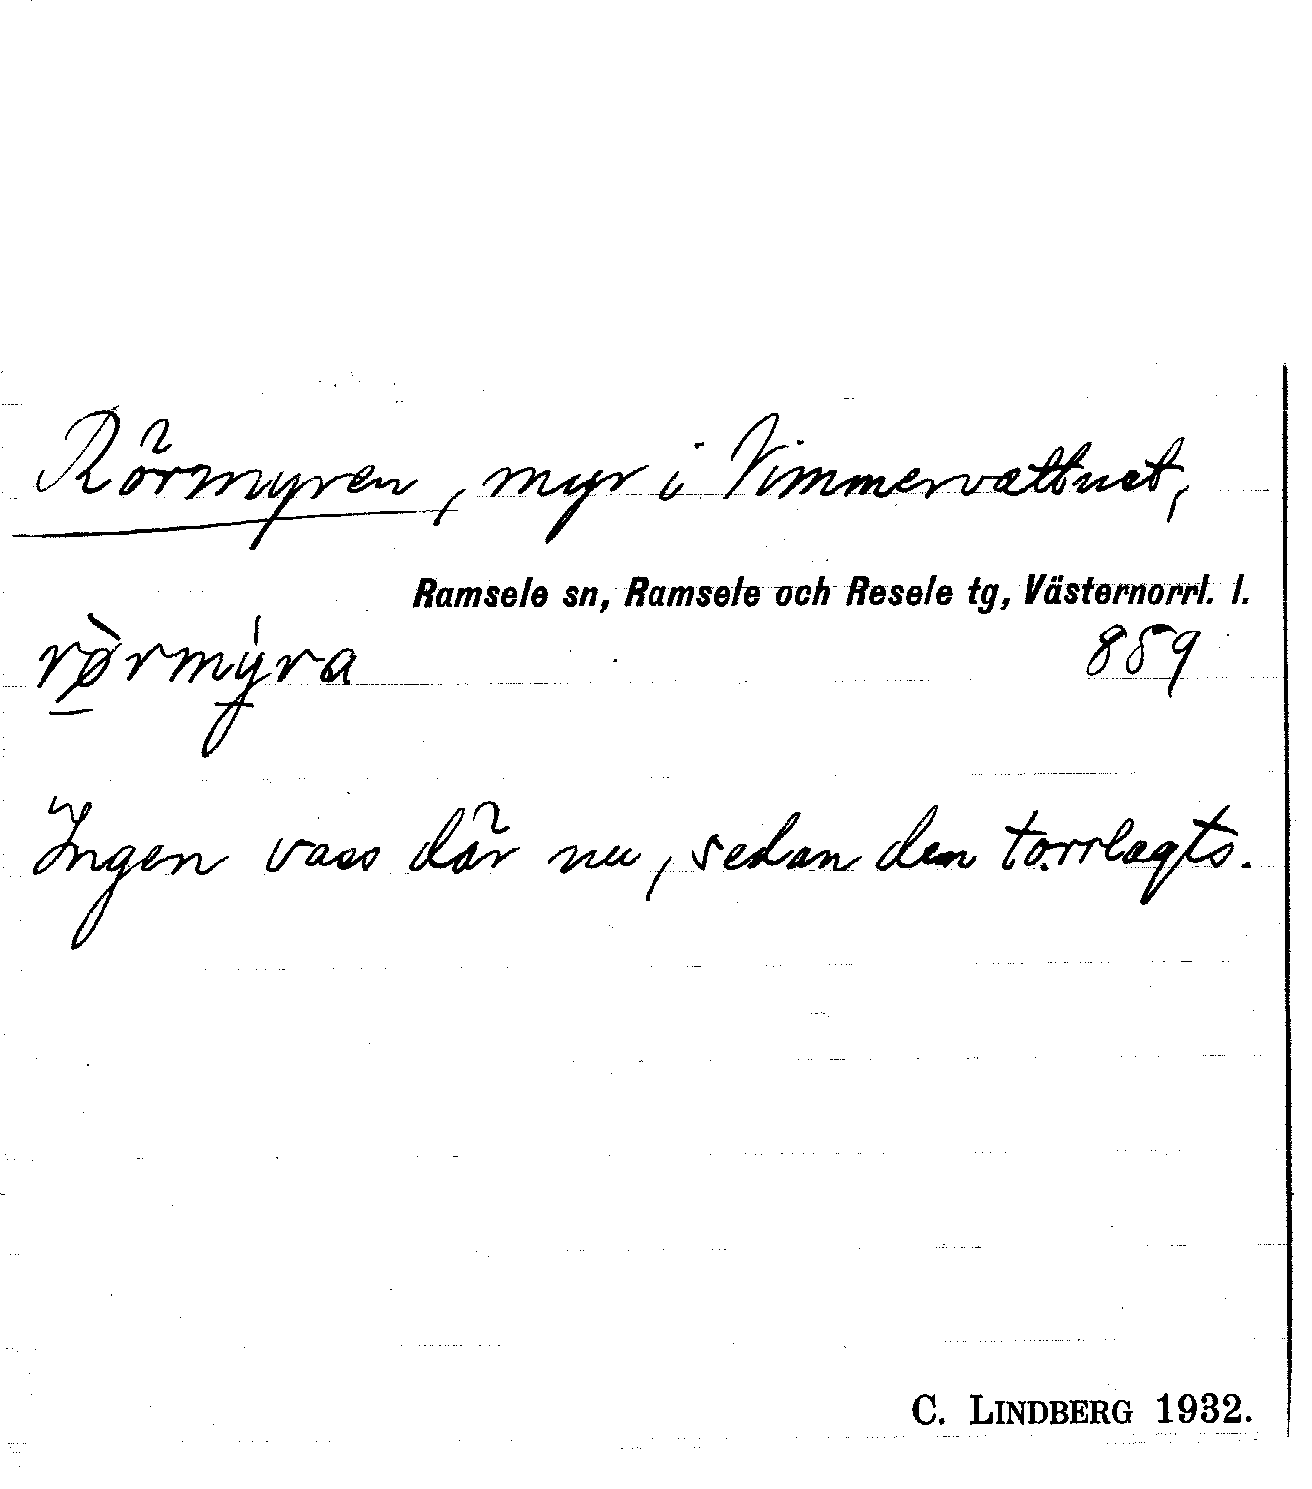 Rörmyren, myr i Vimmervattnet,
Ramsele sn, Ramsele och Resele tg, Västernorrl. l.
rø̀rmýra 859
Ingen vass där nu, sedan den torrlagts.
C. LINDBERG 1932.